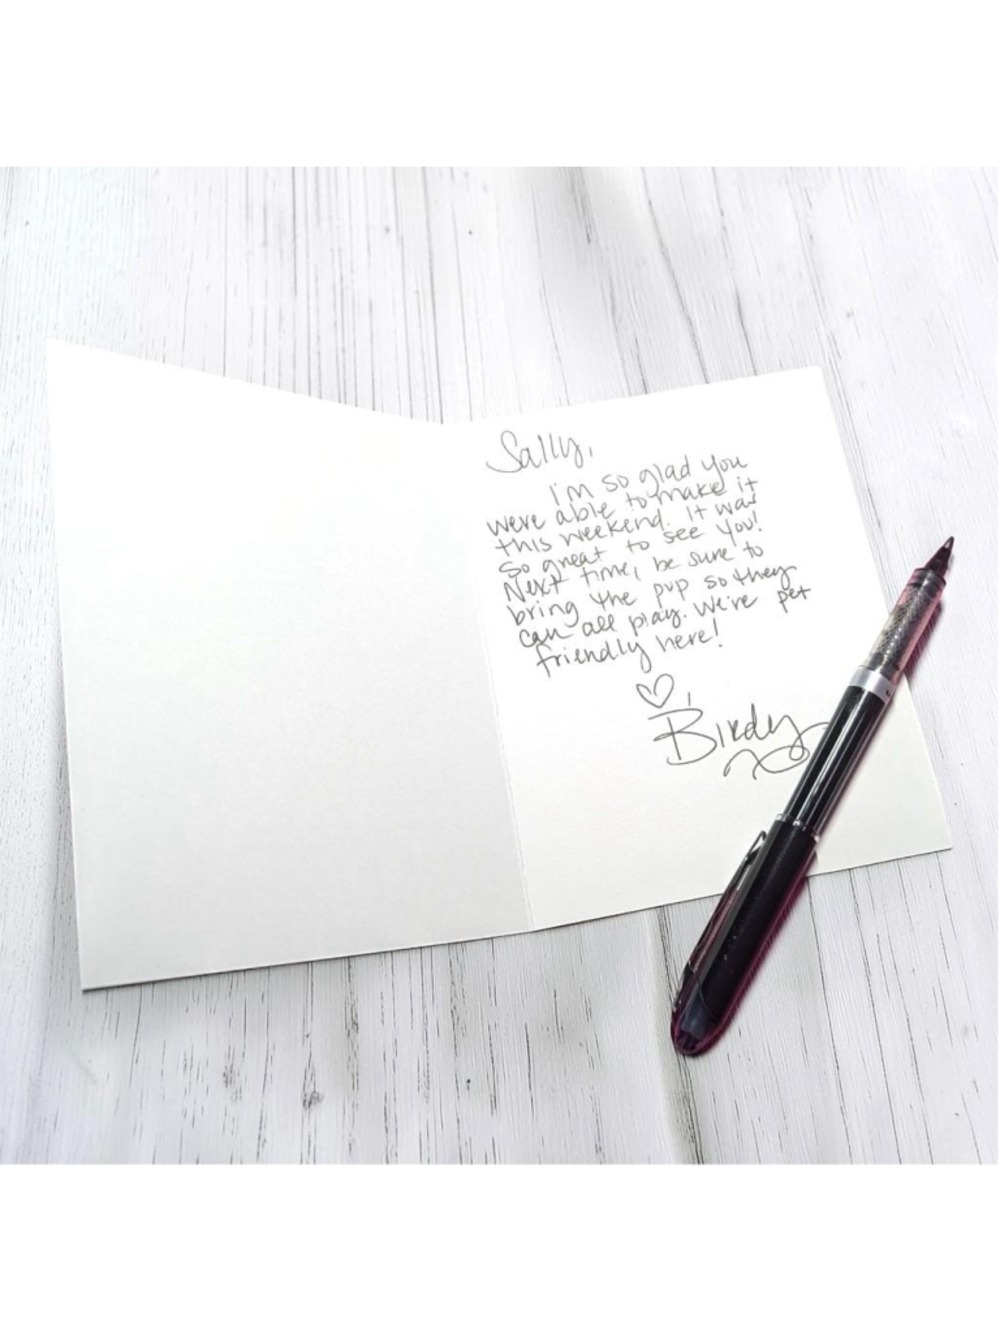 Sally,
I'm so glad you
were able to make it
this weekend. It was
so great to see you!
Next time, be sure to
bring the pup so they
can all play. We're pet
friendly here!
♡,
Birdy